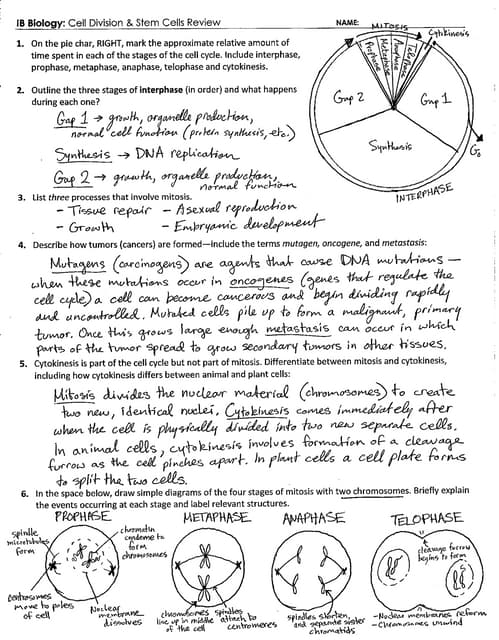 IB Biology: Cell Division & Stem Cells Review
NAME:
MITOSIS
Cytokinesis
1. On the pie char, RIGHT, mark the approximate relative amount of
time spent in each of the stages of the cell cycle. Include interphase,
prophase, metaphase, anaphase, telophase and cytokinesis.
Prophase
Metaphase
Anaphase
Telophase
Gap 2
Gap 1
Synthesis
G₀
INTERPHASE
2. Outline the three stages of interphase (in order) and what happens
during each one?
Gap 1 → growth, organelle production,
normal cell function (protein synthesis, etc.)
Synthesis → DNA replication
Gap 2 → growth, organelle production,
normal function
3. List three processes that involve mitosis.
- Tissue repair - Asexual reproduction
- Growth - Embryonic development
4. Describe how tumors (cancers) are formed—Include the terms mutagen, oncogene, and metastasis:
Mutagens (carcinogens) are agents that cause DNA mutations —
when these mutations occur in oncogenes (genes that regulate the
cell cycle) a cell can become cancerous and begin dividing rapidly
and uncontrolled. Mutated cells pile up to form a malignant, primary
tumor. Once this grows large enough metastasis can occur in which
parts of the tumor spread to grow secondary tumors in other tissues.
5. Cytokinesis is part of the cell cycle but not part of mitosis. Differentiate between mitosis and cytokinesis,
including how cytokinesis differs between animal and plant cells:
Mitosis divides the nuclear material (chromosomes) to create
two new, identical nuclei. Cytokinesis comes immediately after
when the cell is physically divided into two new separate cells.
In animal cells, cytokinesis involves formation of a cleavage
furrow as the cell pinches apart. In plant cells a cell plate forms
to split the two cells.
6. In the space below, draw simple diagrams of the four stages of mitosis with two chromosomes. Briefly explain
the events occurring at each stage and label relevant structures.
PROPHASE
METAPHASE
ANAPHASE
TELOPHASE
spindle
microtubules
form
chromatin
condense to
form
chromosomes
centrosomes
move to poles
of cell
Nuclear
membrane
dissolves
chromosomes
line up in middle
of the cell
spindles
attach to
centromeres
spindles shorten,
and separate sister
chromatids
cleavage furrow
begins to form
- Nuclear membranes reform
- Chromosomes unwind